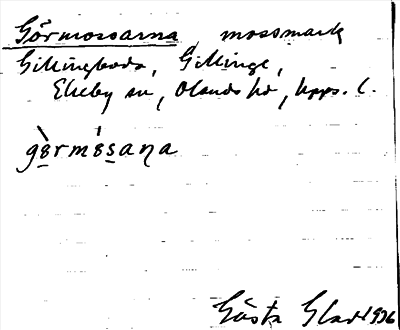 Görmossarna, mossmark
Gillingboda, Gillinge,
Ekeby sn, Olands hd, Upps. l.
gö̀rmósana
Gösta Glad 1936